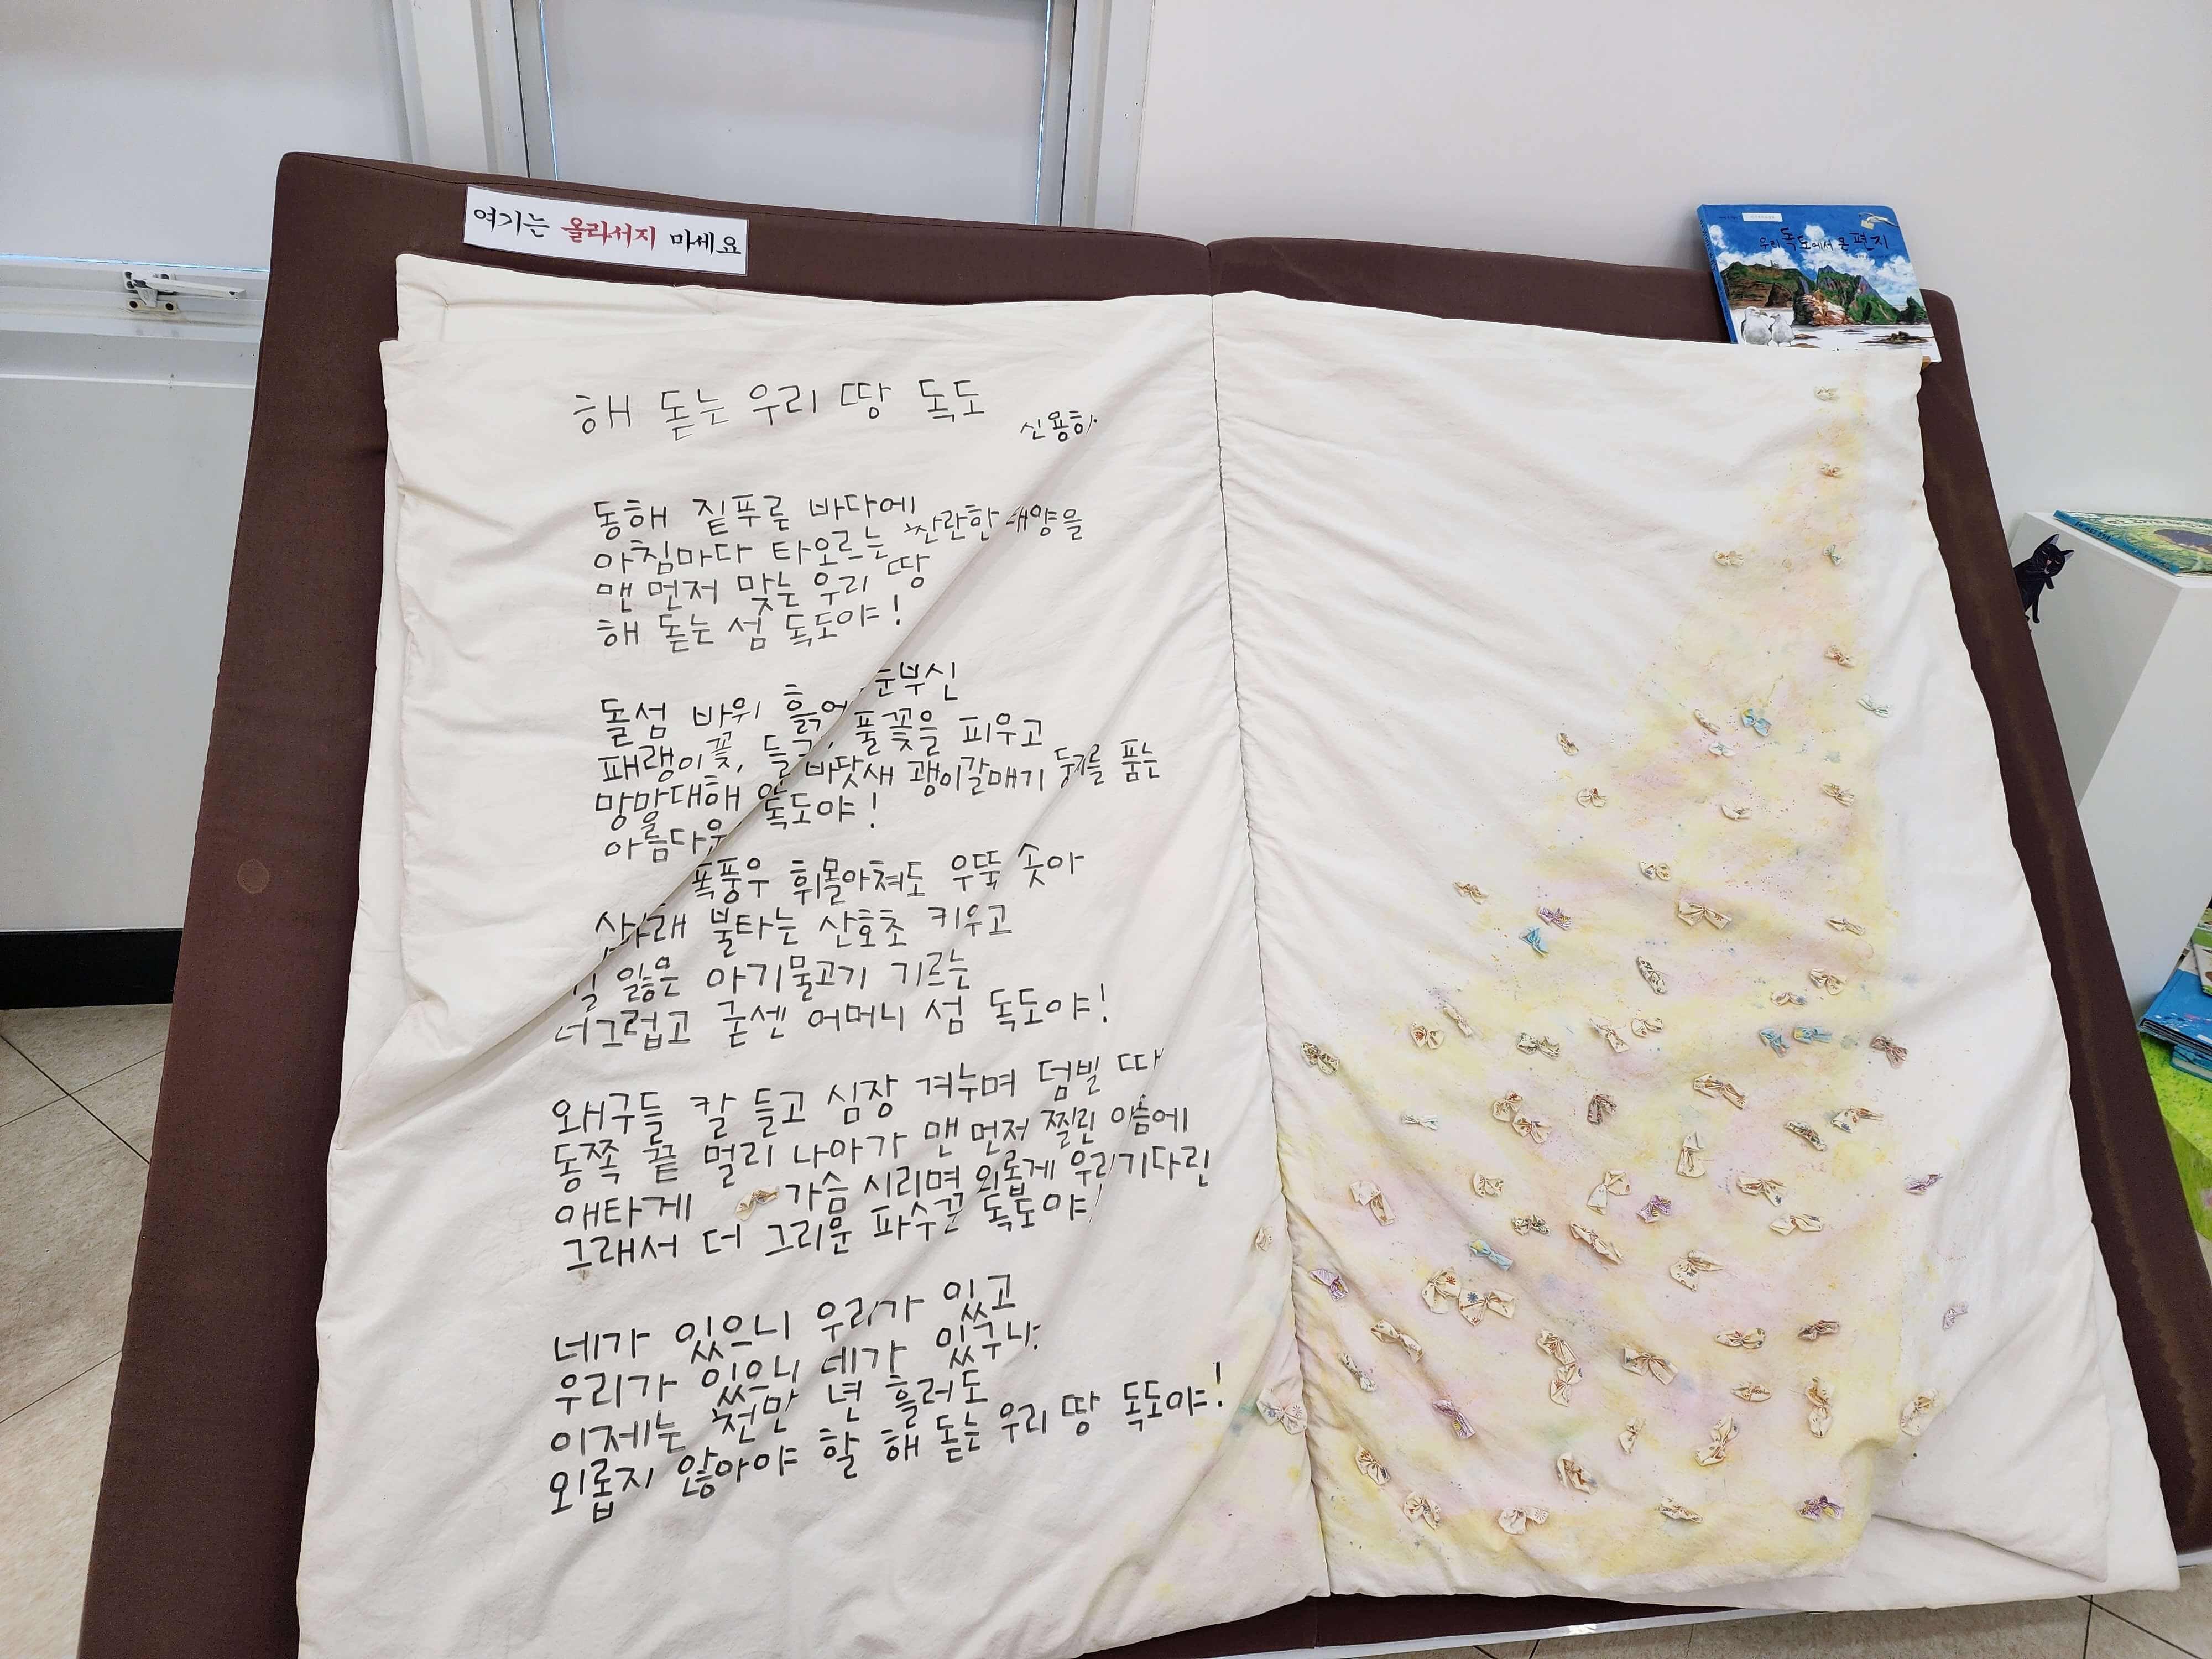 여기는 올라서지 마세요
우리 독도에서 온 편지
해 돋는 우리 땅 독도
신용하
동해 짙푸른 바다에
아침마다 타오르는 찬란한 태양을
맨 먼저 맞는 우리 땅
해 돋는 섬 독도야!
돌섬 바위 흙에 눈부신
패랭이꽃, 들국, 풀꽃을 피우고
망망대해 바닷새 괭이갈매기 둥지를 품는
아름다운 독도야!
폭풍우 휘몰아쳐도 우뚝 솟아
불타는 산호초 키우고
길 잃은 아기물고기 기르는
너그럽고 굳센 어머니 섬 독도야!
왜구들 칼 들고 심장 겨누며 덤빌 때
동쪽 끝 멀리 나아가 맨 먼저 찔린 아픔에
애타게 가슴 시리며 외롭게 우리 기다린
그래서 더 그리운 파수꾼 독도야!
네가 있으니 우리가 있고
우리가 있으니 네가 있구나.
이제는 천만 년 흘러도
외롭지 않아야 할 해 돋는 우리 땅 독도야!